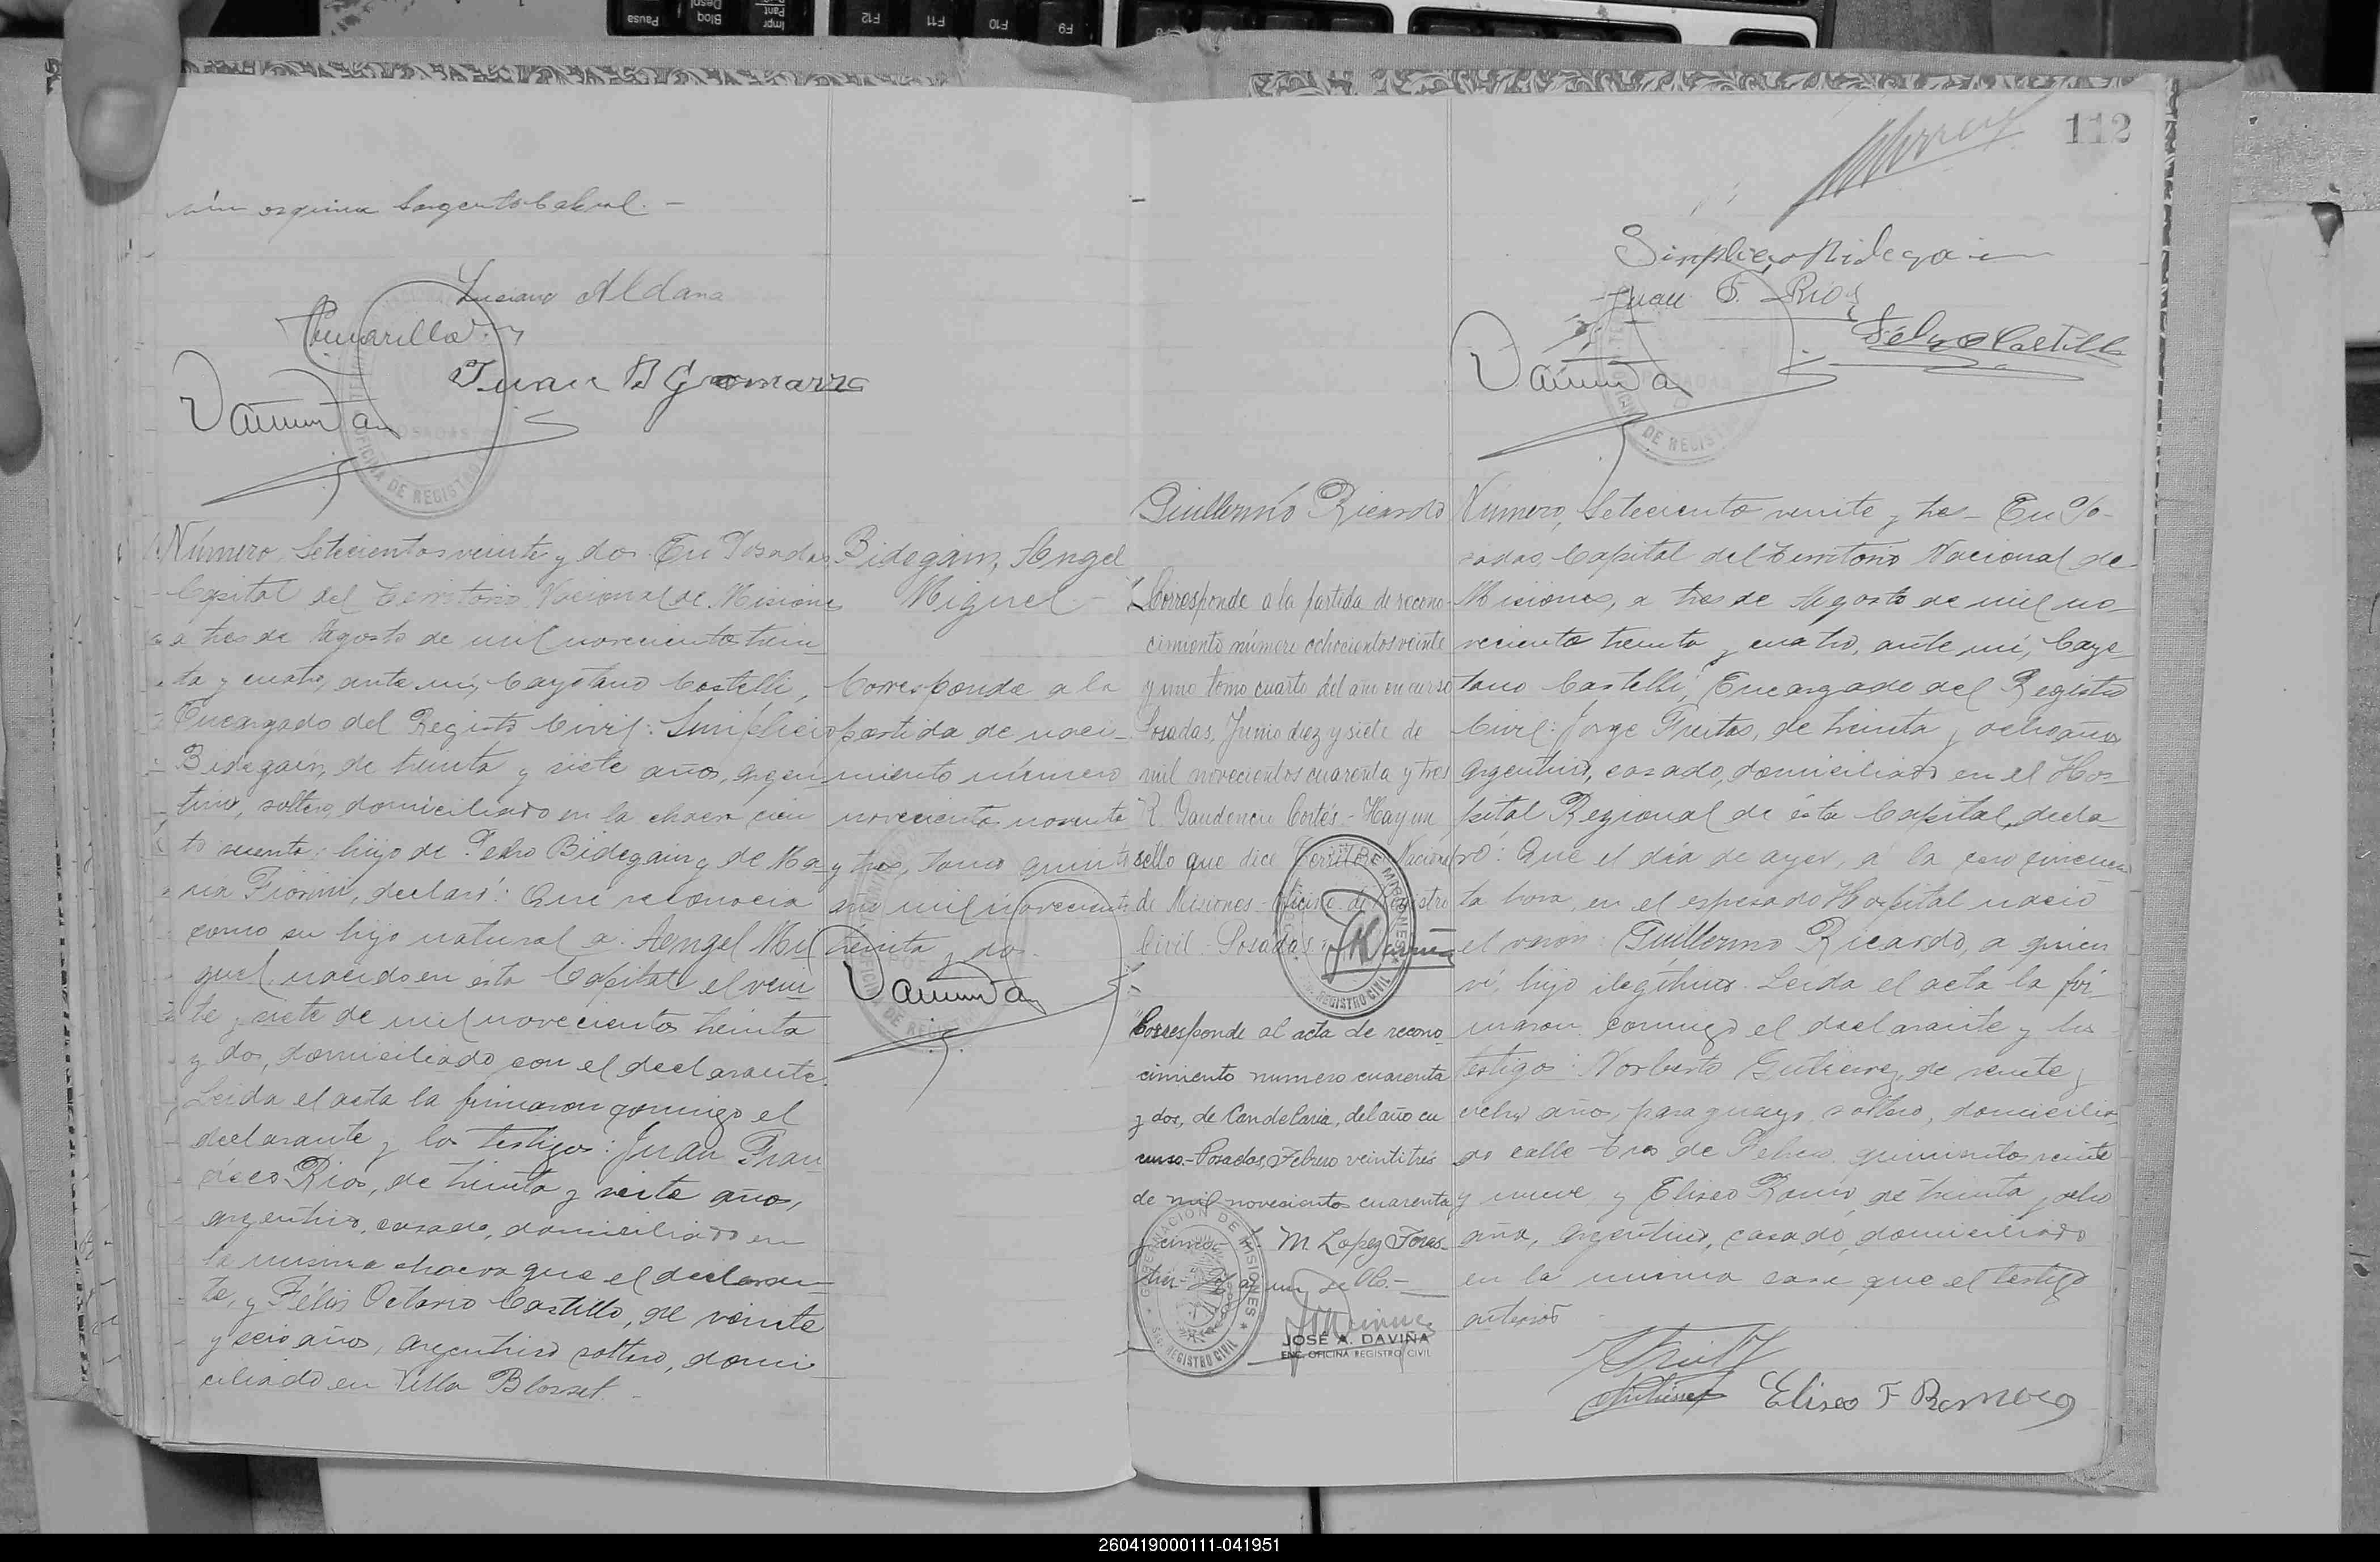 112
esquina Sargento Cabral.-
Luciano Aldana
Juan B Gomarra
Simplicio Bidegain
Juan F. Rios
Félix O Castillo
Número Setecientos veinte y dos. En Posadas
Capital del Territorio Nacional de Misiones
a tres de Agosto de mil novecientos trein
ta y cuatro, ante mí, Cayetano Castelli,
Encargado del Registro Civil: Simplicio
Bidegain, de treinta y siete años, argen
tino, soltero, domiciliado en la chacra cien
to veinte; hijo de Pedro Bidegain y de Ma
ría Fiorini, declaró: Que reconocía
como su hijo natural a: Aengel Mi
guel, nacido en ésta Capital el vein
te y siete de mil novecientos treinta
y dos, domiciliado con el declarante.
Leída el acta la firmaron conmigo el
declarante y los testigos: Juan Fran
cisco Rios, de treinta y siete años,
argentino, casado, domiciliado en
la misma chacra que el declaran-
te, y Félix Octavio Castillo, de veinte
y seis años, argentino soltero, domi
ciliado en Villa Blosset.-
Bidegain, Angel
Miguel-
Corresponde a la
partida de naci-
miento número
novecientos noventa
y tres, tomo quinto
año mil novecientos
treinta y dos.
Guillermo Ricardo
"Corresponde a la partida de recono-
cimiento número ochocientos veinte
y uno tomo cuarto del año en curso
Posadas, Junio diez y siete de
mil novecientos cuarenta y tres
R. Gaudencio Cortés - Hay un
sello que dice Territ. Nacional
de Misiones - Oficina de Registro
Civil - Posadas"
"Corresponde al acta de recono-
cimiento numero cuarenta
y dos, de Candelaria, del año en
curso.- Posadas, Febrero veintitrés
de mil novecientos cuarenta
y cinco M. Lopez Fores-
tier - Hay un sello.-
JOSÉ A. DAVIÑA
ENC. OFICINA REGISTRO CIVIL
Número, Setecientos veinte y tres- En Po-
sadas, Capital del Territorio Nacional de
Misiones, a tres de Agosto de mil no-
vecientos treinta y cuatro, ante mí, Caye-
tano Castelli, Encargado del Registro
Civil: Jorge Freitas, de treinta y ocho años
argentino, casado, domiciliado en el Hos-
pital Regional de ésta Capital, decla-
ró: Que el día de ayer, a la cero cincuen
ta hora, en el expresado Hospital nació
el varón: Guillermo Ricardo, a quien
ví, hijo ilegítimo. Leída el acta la fir
maron conmigo el declarante y los
testigos: Norberto Gutierrez, de veinte y
ocho años, paraguayo, soltero, domicilia
do calle tres de Febrero quinientos veinte
y nueve y Eliseo Romero, de treinta y ocho
años, argentino, casado, domiciliado
en la misma casa que el testigo
anterior
Eliseo F Romero
260419000111-041951